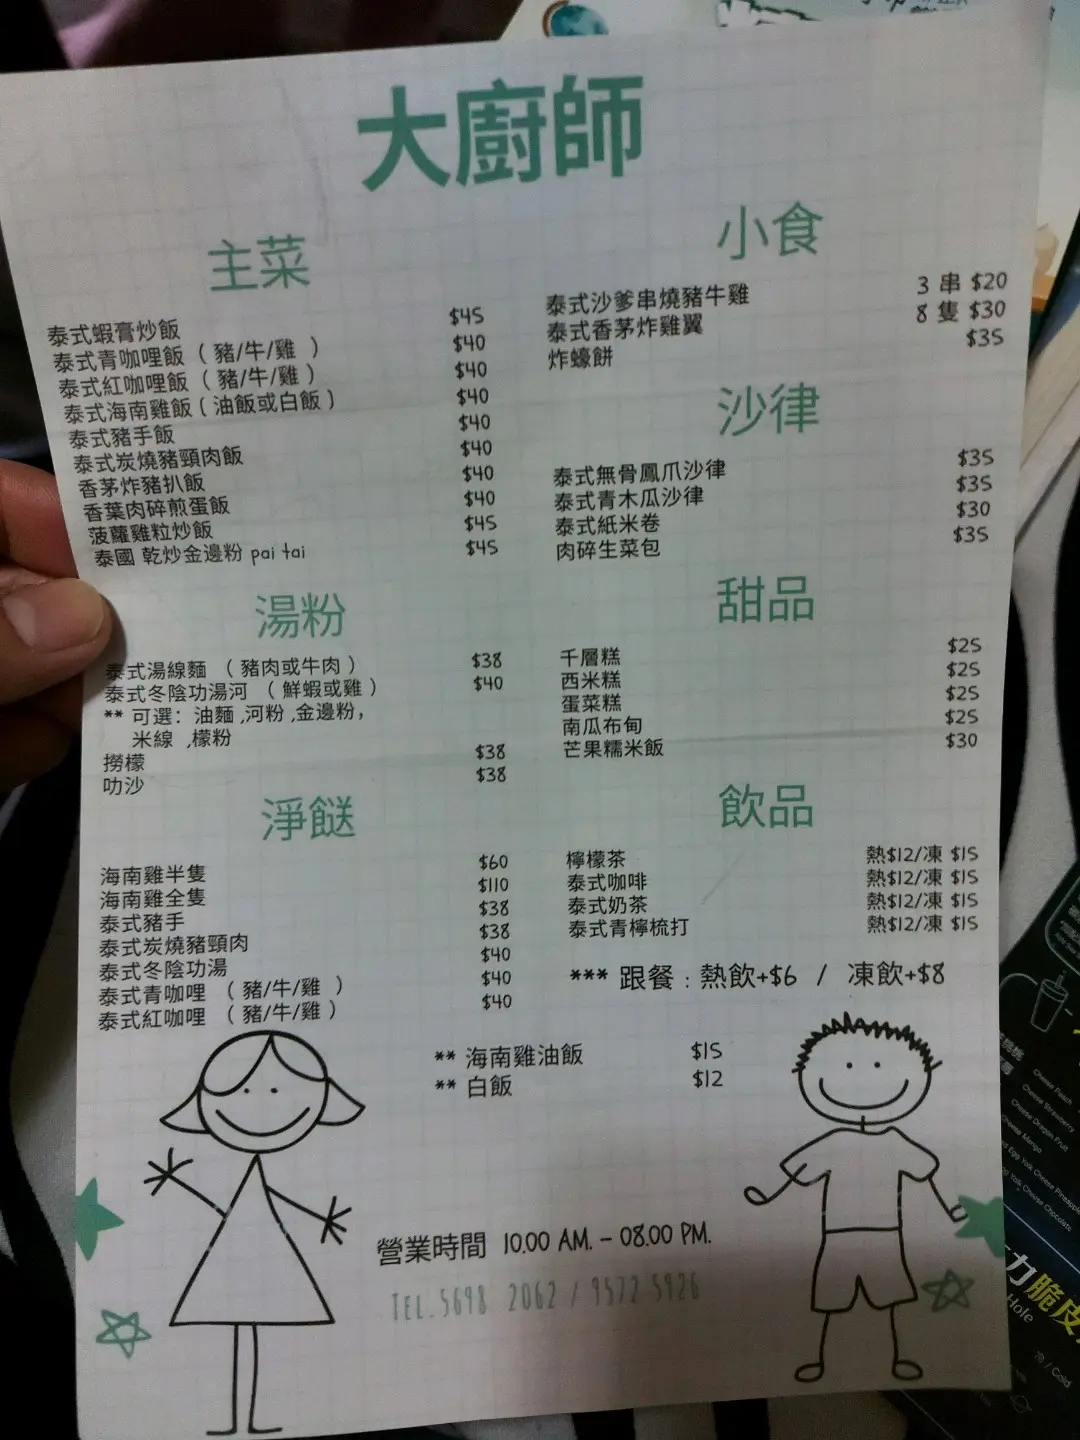 大廚師
主菜
泰式蝦膏炒飯 $45
泰式青咖哩飯 ( 豬/牛/雞 ) $40
泰式紅咖哩飯 ( 豬/牛/雞 ) $40
泰式海南雞飯 ( 油飯或白飯 ) $40
泰式豬手飯 $40
泰式炭燒豬頸肉飯 $40
香茅炸豬扒飯 $40
香葉肉碎煎蛋飯 $40
菠蘿雞粒炒飯 $45
泰國 乾炒金邊粉 pai tai $45
湯粉
泰式湯線麵 ( 豬肉或牛肉 ) $38
泰式冬陰功湯河 ( 鮮蝦或雞 ) $40
** 可選：油麵 ,河粉 ,金邊粉，
米線 ,檬粉
撈檬 $38
叻沙 $38
淨餸
海南雞半隻 $60
海南雞全隻 $110
泰式豬手 $38
泰式炭燒豬頸肉 $38
泰式冬陰功湯 $40
泰式青咖哩 ( 豬/牛/雞 ) $40
泰式紅咖哩 ( 豬/牛/雞 ) $40
小食
泰式沙爹串燒豬牛雞 3 串 $20
泰式香茅炸雞翼 8 隻 $30
炸蠔餅 $35
沙律
泰式無骨鳳爪沙律 $35
泰式青木瓜沙律 $35
泰式紙米卷 $30
肉碎生菜包 $35
甜品
千層糕 $25
西米糕 $25
蛋菜糕 $25
南瓜布甸 $25
芒果糯米飯 $30
飲品
檸檬茶 熱$12/凍 $15
泰式咖啡 熱$12/凍 $15
泰式奶茶 熱$12/凍 $15
泰式青檸梳打 熱$12/凍 $15
*** 跟餐 : 熱飲+$6 / 凍飲+$8
** 海南雞油飯 $15
** 白飯 $12
營業時間 10.00 AM. - 08.00 PM.
TEL.5698 2062 / 9572 5926
Cheese Peach
Cheese Strawberry
Cheese Dragon Fruit
Cheese Mango
Egg Yolk Cheese Pineapple
Egg Yolk Cheese Chocolate
力脆皮
Hole
冷 / Cold